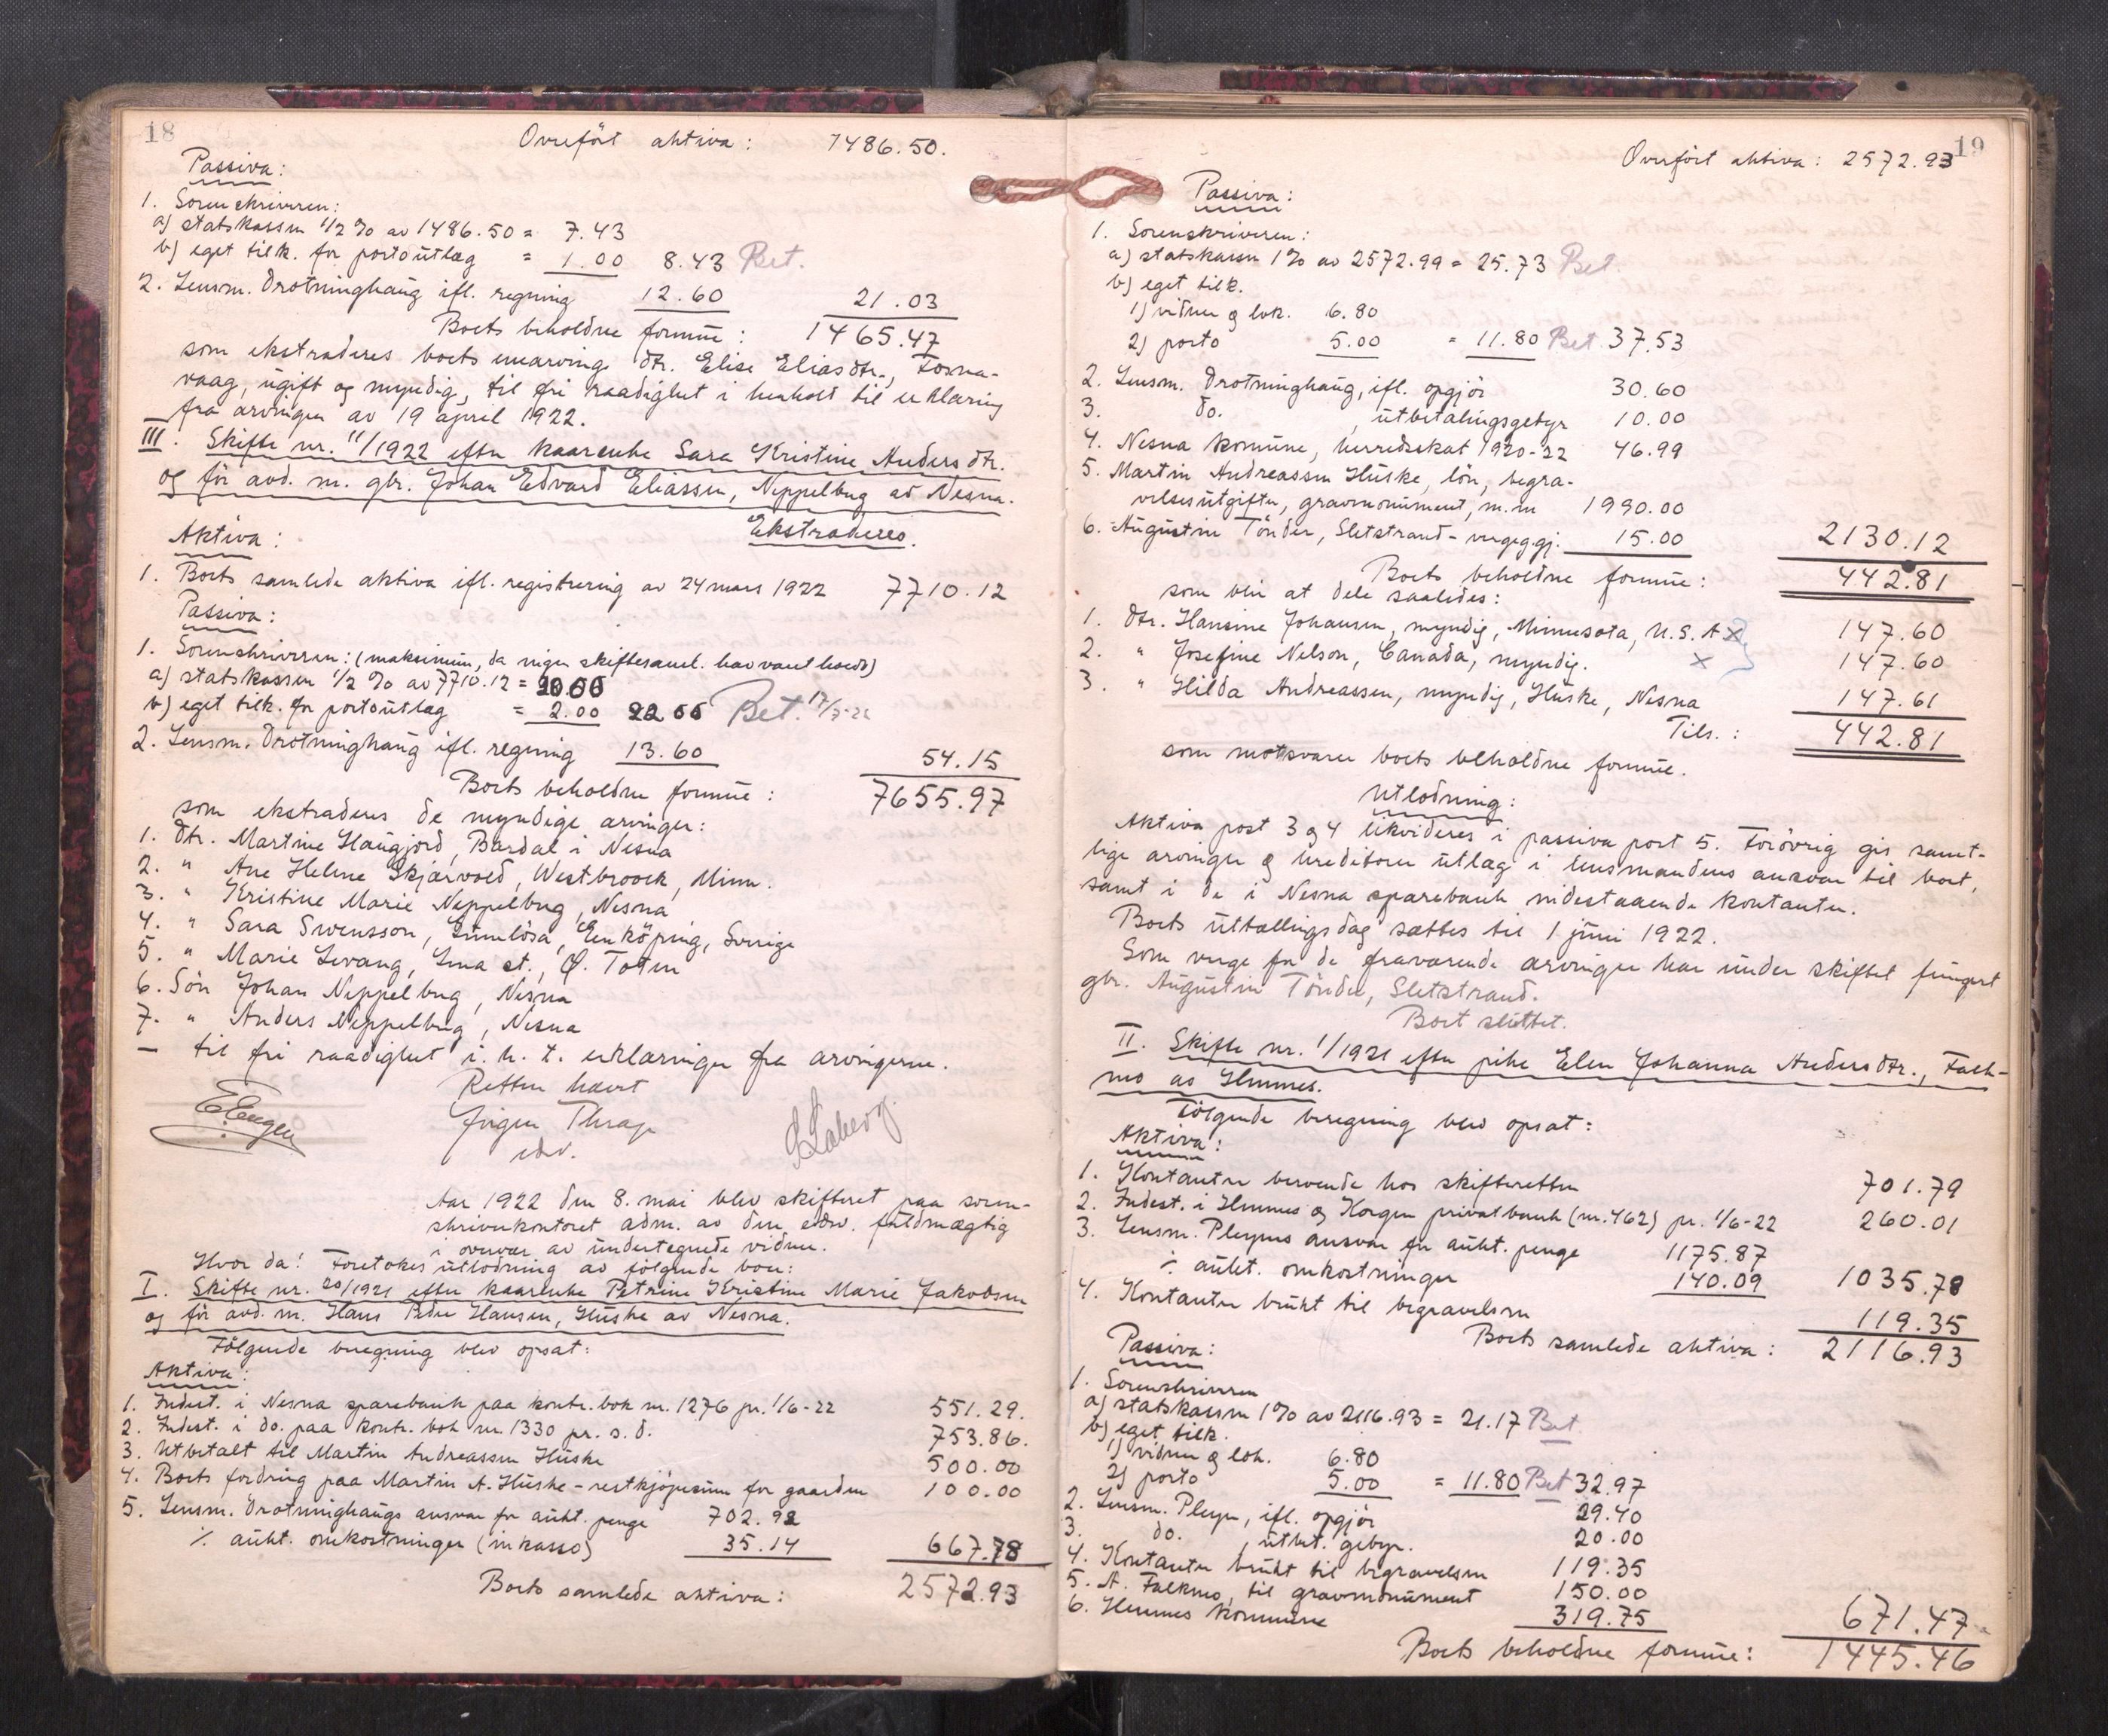 18
Overfört aktiva: 1486.50.
Passiva:
1. Sorenskriveren:
a) statskassen 1/2 % av 1486.50 = 7.43
b) eget tilk. for portoutlæg = 1.00 8.43 Bet.
2. Lensm. Drotninghaug ifl. regning 12.60 21.03
Boets beholdne formue: 1465.47
som ekstraderes boets enearving dtr. Elise Eliasdtr., Tosna-
vaag, ugift og myndig, til fri raadighet i henhold til erklæring
fra arvingen av 19 april 1922.
III. Skifte nr. 11/1922 efter kaarenke Sara Kristine Andersdtr.
og för avd. m. gbr. Johan Edvard Eliassen, Neppelberg av Nesna.
Ekstraderes.
Aktiva:
1. Boets samlede aktiva ifl. registrering av 24 mars 1922 7710.12
Passiva:
1. Sorenskriveren: (maksimum, da ingen skiftesaml. har været holdt)
a) statskassen 1/2 % av 7710.12 =
b) eget tilk. for portoutlæg = 2.00 Bet. 17/5-22
2. Lensm. Drotninghaug ifl. regning 13.60 54.15
Boets beholdne formue: 7655.97
som ekstraderes de myndige arvinger:
1. Dtr. Martine Haugjord, Bardal i Nesna
2. " Ane Helene Skjærvold, Westbroock, Minn.
3. " Kristine Marie Neppelberg, Nesna
4. " Sara Swensson, Enköping, Sverige
5. " Marie Levang, Lena st., Ø. Toten
6. Sön Johan Neppelberg, Nesna
7. " Anders Neppelberg, Nesna
— til fri raadighet i. h. t. erklæringer fra arvingerne.
Retten hævet
Jörgen Thrap
edv.
Aar 1922 den 8. mai blev skifteret paa soren-
skriverkontoret adm. av den edsv. fuldmægtig
i overvær av undertegnede vidner.
Hvor da! Foretokes utlodning av fölgende boer:
I. Skifte nr. 20/1921 efter kaarenke Petrine Kristine Marie Jakobsen
og för avd. m. Hans Peder Hansen, Huske av Nesna.
Fölgende beregning blev opsat:
Aktiva:
1. Indest. i Nesna sparebank paa kontr. bok nr. 1276 pr. 1/6-22 551.29.
2. Indest. i do. paa kontr. bok nr. 1330 pr. s. d. 753.86.
3. Utbetalt til Martin Andreassen Huske 500.00
4. Boets fordring paa Martin A. Huske - restkjöpesum for gaarden 100.00
5. Lensm. Drotninghaugs ansvar for aukt. penge 702.92
÷ aukt. omkostninger (inkasso) 35.14 667.78
Boets samlede aktiva: 2572.93
19
Overfört aktiva: 2572.93
Passiva:
1. Sorenskriveren:
a) statskassen 1% av 2572.99 = 25.73 Bet.
b) eget tilk.
1) vidner og lok. 6.80
2) porto 5.00 = 11.80 Bet. 37.53
2. Lensm. Drotninghaug, ifl. opgjör 30.60
3. do. , utbetalingsgebyr 10.00
4. Nesna komune, herredsskat 1920-22 46.99
5. Martin Andreassen Huske, lön, begra-
velsesutgifter, gravmonument, m.m 1990.00
6. Augustin Tönder, Sletstrand - vergegj. 15.00 2130.12
Boets beholdne formue: 442.81
som blir at dele saaledes:
1. Dtr. Hansine Johansen, myndig, Minnesota, U.S.A x 147.60
2. " Josefine Nelson, Canada, myndig. x 147.60
3. " Hilda Andreassen, myndig, Huske, Nesna 147.61
Tils.: 442.81
som motsvarer boets beholdne formue.
Utlodning:
Aktiva post 3 og 4 likvideres i passiva post 5. Forövrig gis samt-
lige arvinger og kreditorer utlæg i lensmandens ansvar til boet,
samt i de i Nesna sparebank indestaaende kontanter.
Boets uttællingsdag sættes til 1 juni 1922.
Som verge for de fraværende arvinger har under skiftet fungert
gbr. Augustin Tönder, Sletstrand.
Boet sluttet.
II. Skifte nr. 1/1921 efter pike Elen Johanna Andersdtr., Falk-
mo av Hemnes.
Fölgende beregning blev opsat:
Aktiva:
1. Kontanter beroende hos skifteretten 701.79
2. Indest. i Hemnes og Korgen privatbank (nr. 462) pr. 1/6-22 260.01
3. Lensm. Pleyms ansvar for aukt. penge 1175.87
÷ aukt. omkostninger 140.09 1035.78
4. Kontanter brukt til begravelsen 119.35
Boets samlede aktiva: 2116.93
Passiva:
1. Sorenskriveren
a) statskassen 1% av 2116.93 = 21.17 Bet
b) eget tilk.
1) vidner og lok. 6.80
2) porto 5.00 = 11.80 Bet 32.97
2. Lensm. Pleym, ifl. opgjör 29.40
3. do. , utbet. gebyr. 20.00
4. Kontanter brukt til begravelsen 119.35
5. A. Falkmo, til gravmonument 150.00
6. Hemnes kommune 319.75 671.47
Boets beholdne formue: 1445.46